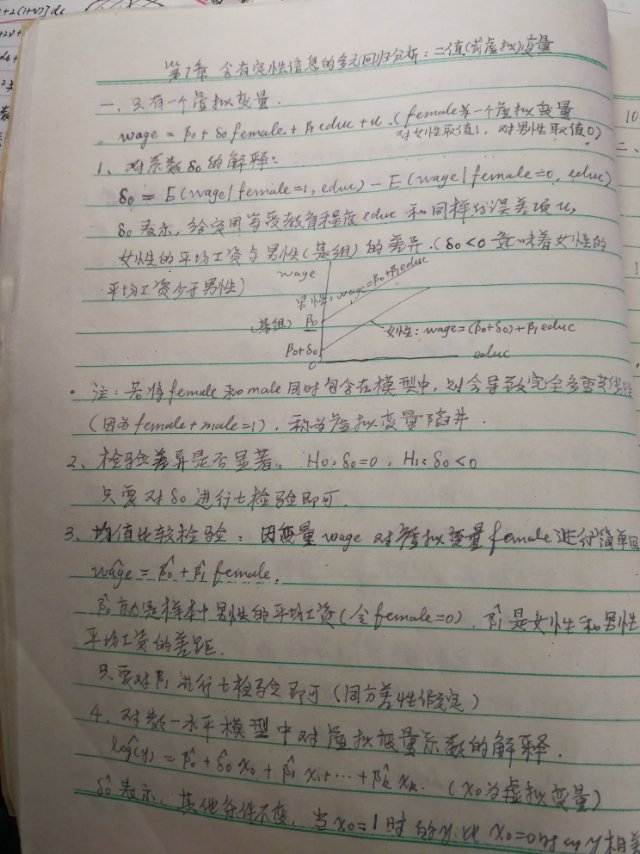 第7章 含有定性信息的多元回归分析：二值(或虚拟)变量
一、只有一个虚拟变量.
wage = β0 + δ0 female + β1 educ + u. (female为一个虚拟变量
对女性取值1, 对男性取值0)
1、对系数δ0的解释:
δ0 = E(wage|female=1, educ) - E(wage|female=0, educ)
δ0表示, 给定同等受教育程度educ和同样的误差项u,
女性的平均工资与男性(基组)的差异.(δ0<0意味着女性的
平均工资少于男性)
wage
男性: wage=β0+β1educ
(基组) β0
女性: wage=(β0+δ0)+β1educ
β0+δ0
0
educ
· 注: 若将female和male同时包含在模型中, 则会导致完全多重共线性
(因为female+male=1). 称为虚拟变量陷井.
2、检验差异是否显著. H0: δ0=0, H1: δ0<0
只要对δ0进行t检验即可.
3、均值比较检验: 因变量wage对虚拟变量female进行简单回
wagê = β̂0 + β̂1 female.
β̂0就是样本中男性的平均工资(令female=0), β̂1是女性和男性
平均工资的差距.
只要对β1进行t检验即可(同方差性假定)
4、对数一水平模型中对虚拟变量系数的解释.
loĝ(y) = β̂0 + δ̂0 x0 + β̂1 x1 + ··· + β̂k xk. (x0为虚拟变量)
δ̂0表示, 其他条件不变, 当x0=1时的y比x0=0时的y相差